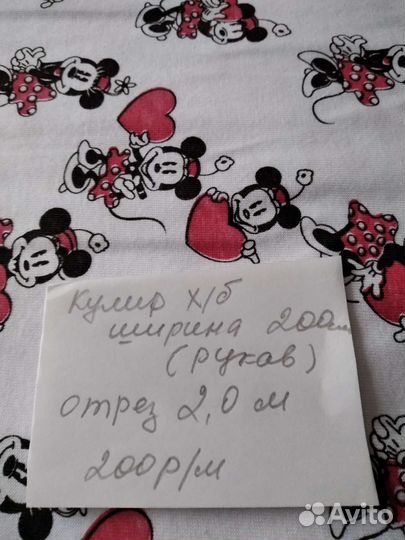 Кулир х/б
ширина 200см
(рукав)
отрез 2,0 м
200р/м
Avito